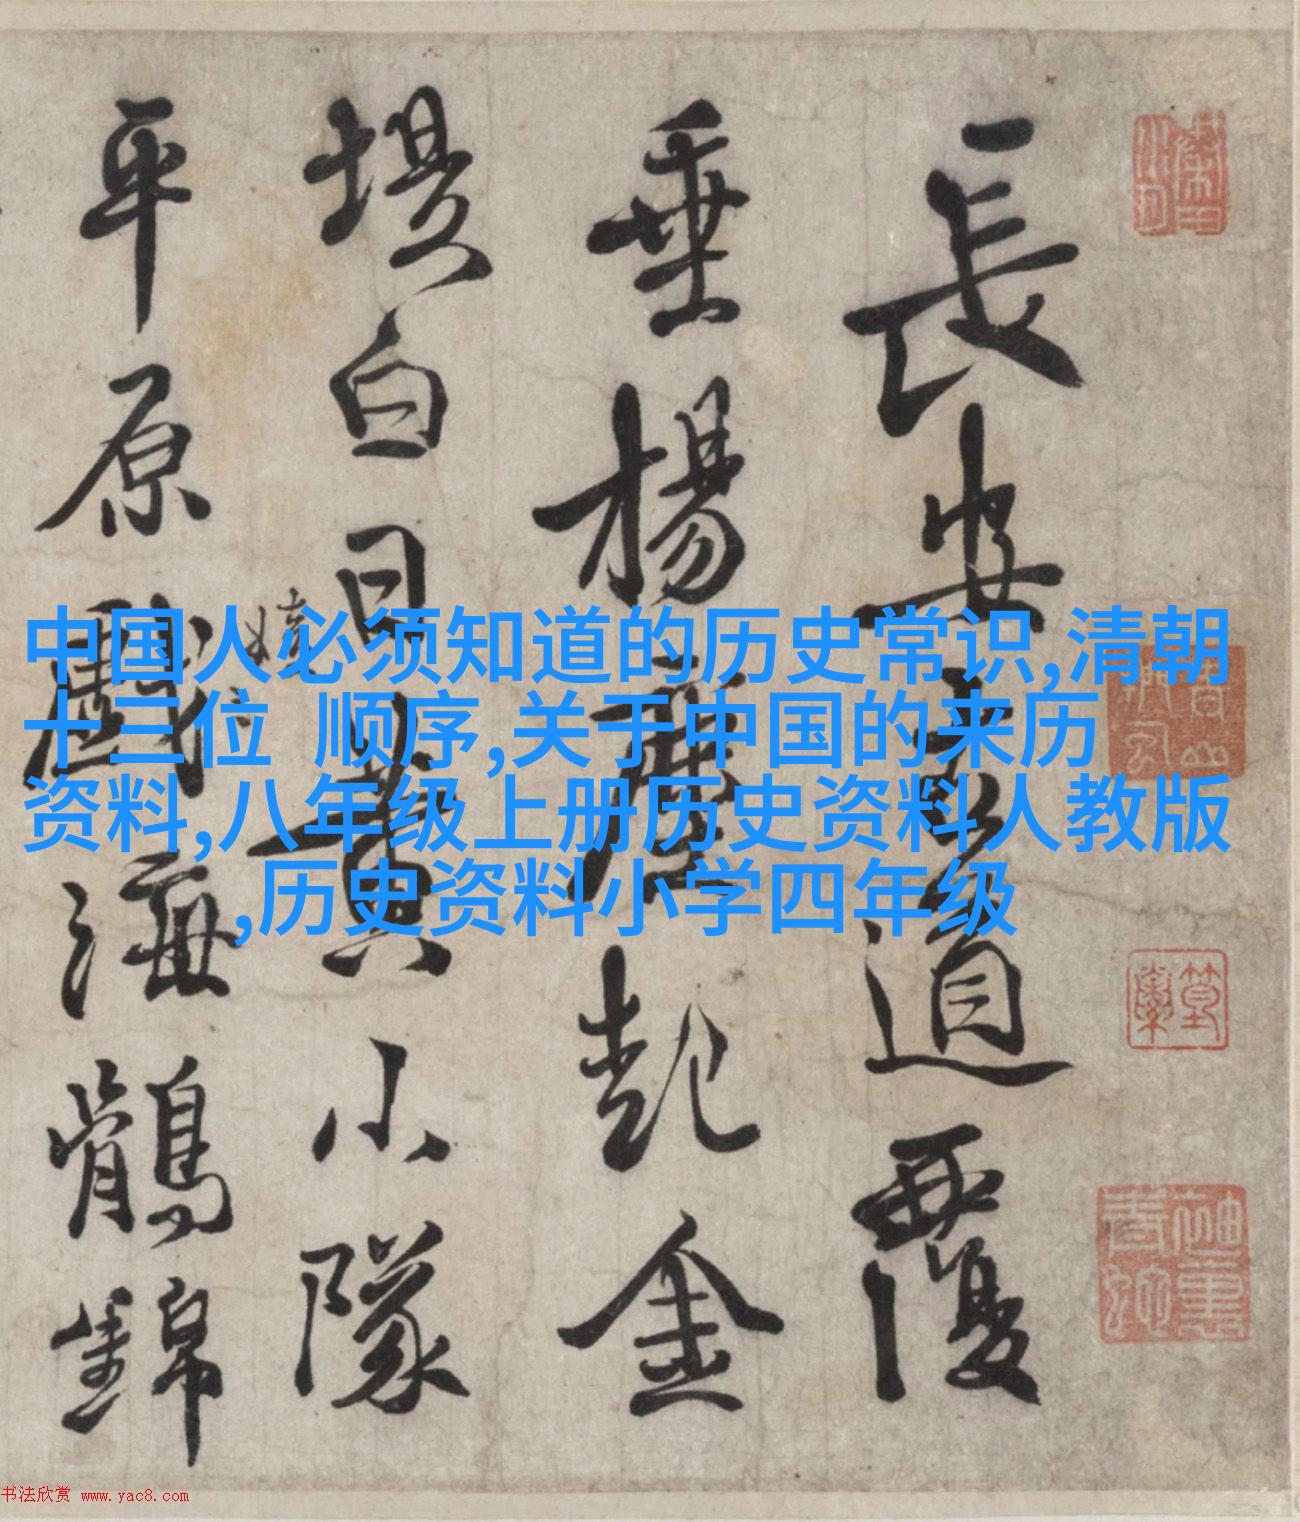 長安道覆
垂楊起金
堤白日小隊
平原海鶻錦
中国人必须知道的历史常识,清朝
十三位 顺序,关于中国的来历
资料,八年级上册历史资料人教版
,历史资料小学四年级
书法欣赏 www.yac8.com